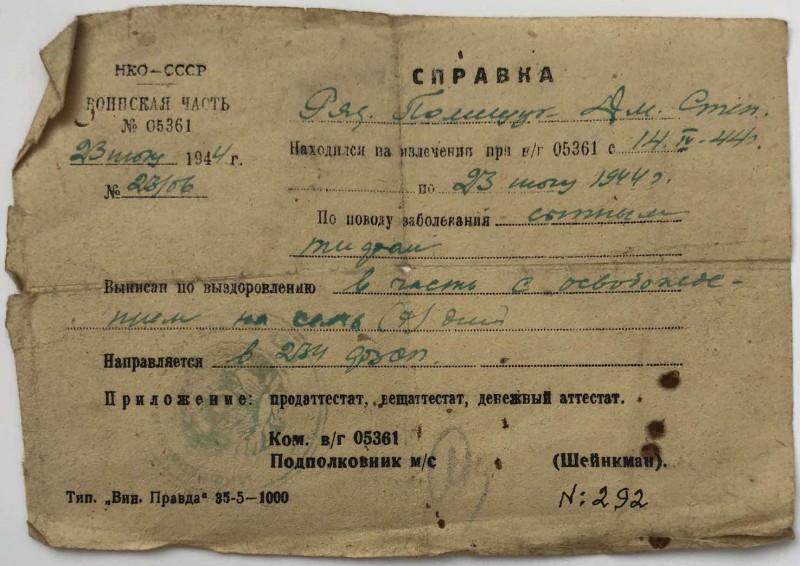 НКО—СССР
ВОИНСКАЯ ЧАСТЬ
№ 05361
23 1944 г.
№ 23/06
СПРАВКА
Ряд. Полищук Дм. Степ.
Находился на излечении при в/г 05361 с 14.IV-44г.
по 23 1944 г.
По поводу заболевания сыпным
тифом
Выписан по выздоровлению в часть с освобожде-
нием на семь (7) дней
Направляется в 234
Приложение: продаттестат, вещаттестат, денежный аттестат.
Ком. в/г 05361
Подполковник м/с (Шейнкман).
Тип. „Вин. Правда" 35-5—1000
N: 292